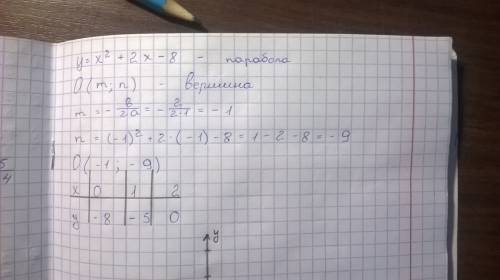 y = x² + 2x - 8 - парабола
O(m; n) - вершина
m = - b/2a = - 2/2·1 = - 1
n = (-1)² + 2·(-1) - 8 = 1 - 2 - 8 = - 9
O(-1; -9)
x 0 1 2
y -8 -5 0
y
5/4